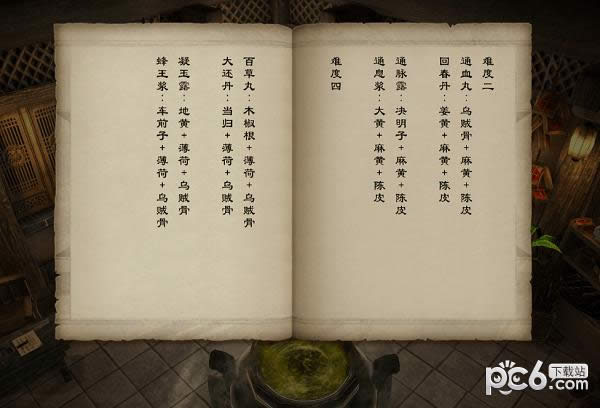 难度二
通血丸：乌贼骨+麻黄+陈皮
回春丹：姜黄+麻黄+陈皮
通脉露：决明子+麻黄+陈皮
通息浆：大黄+麻黄+陈皮
难度四
百草丸：木椒根+薄荷+乌贼骨
大还丹：当归+薄荷+乌贼骨
凝玉露：地黄+薄荷+乌贼骨
蜂王浆：车前子+薄荷+乌贼骨
pc6下载站
.com